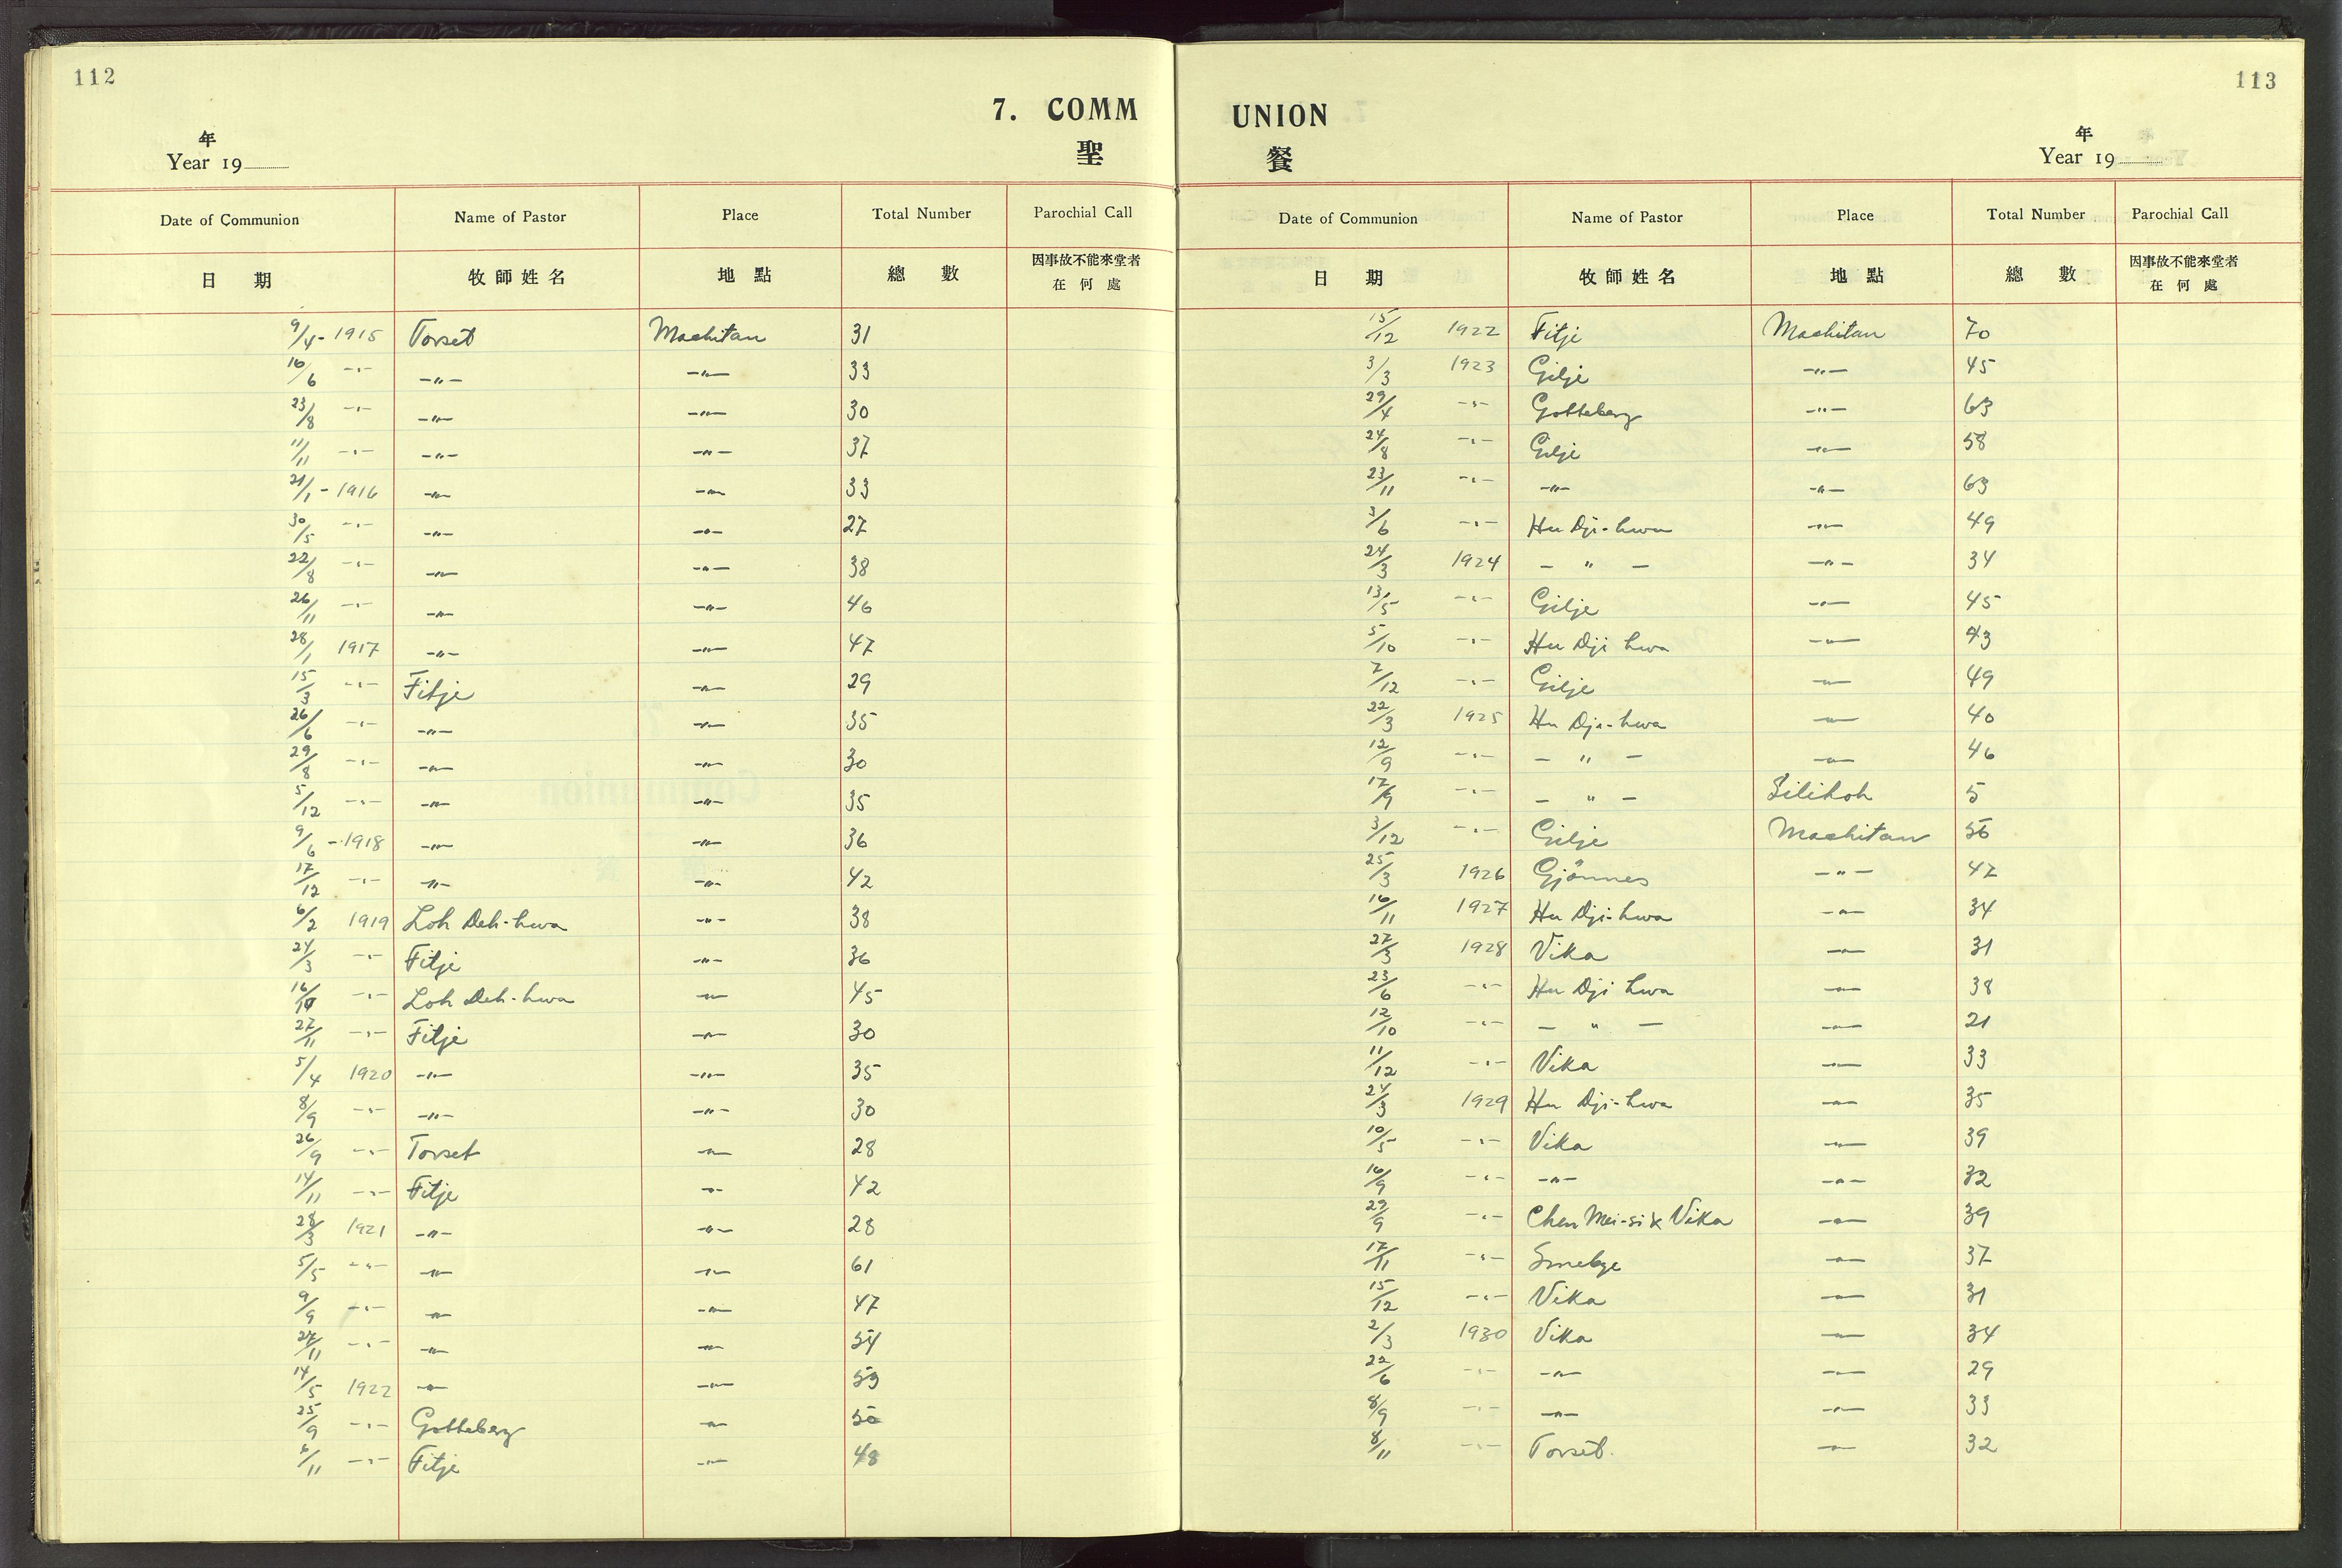 112
7. COMM
年
聖
Year 19
Date of Communion Name of Pastor Place Total Number Parochial Call
日 期 牧師姓名 地點 總數 因事故不能來堂者
在何處
9/4 - 1915 Torset Machitan 31
16/6 -"- -"- -"- 33
23/8 -"- -"- -"- 30
11/11 -"- -"- -"- 37
21/1 - 1916 -"- -"- 33
30/5 -"- -"- -"- 27
22/8 -"- -"- -"- 38
26/11 -"- -"- -"- 46
28/1 1917 -"- -"- 47
15/3 -"- Fitje -"- 29
26/6 -"- -"- -"- 35
29/8 -"- -"- -"- 30
5/12 -"- -"- -"- 35
9/6 - 1918 -"- -"- 36
17/12 -"- -"- -"- 42
6/2 1919 Loh Deh-hwa -"- 38
24/3 -"- Fitje -"- 36
16/10 -"- Loh Deh-hwa -"- 45
27/11 -"- Fitje -"- 30
5/4 1920 -"- -"- 35
8/9 -"- -"- -"- 30
26/9 -"- Torset -"- 28
14/11 -"- Fitje -"- 42
28/3 1921 -"- -"- 28
5/5 -"- -"- -"- 61
9/9 -"- -"- -"- 47
27/11 -"- -"- -"- 54
14/5 1922 -"- -"- 53
25/9 -"- Gotteberg -"- 50
6/11 -"- Fitje -"- 48
113
UNION
年
餐
Year 19
Date of Communion Name of Pastor Place Total Number Parochial Call
日 期 牧師姓名 地點 總數 因事故不能來堂者
在何處
15/12 1922 Fitje Machitan 70
3/3 1923 Gilje -"- 45
29/4 -"- Gotteberg -"- 63
24/8 -"- Gilje -"- 58
23/11 -"- -"- -"- 63
3/6 -"- Hu Dji-hwa -"- 49
24/3 1924 - " - -"- 34
13/5 -"- Gilje -"- 45
5/10 -"- Hu Dji hwa -"- 43
7/12 -"- Gilje -"- 49
22/3 1925 Hu Dji-hwa -"- 40
12/9 -"- - " - -"- 46
17/9 -"- - " - Silikoh 5
3/12 -"- Gilje Machitan 56
25/3 1926 Gjönnes -"- 47
16/11 1927 Hu Dji-hwa -"- 34
27/3 1928 Vika -"- 31
23/6 -"- Hu Dji hwa -"- 38
12/10 -"- - " - -"- 21
11/12 -"- Vika -"- 33
24/3 1929 Hu Dji-hwa -"- 35
10/5 -"- Vika -"- 39
16/9 -"- -"- -"- 32
29/9 -"- Chen Mei-si & Vika -"- 39
17/11 -"- Smebye -"- 37
15/12 -"- Vika -"- 31
2/3 1930 Vika -"- 34
22/6 -"- -"- -"- 29
8/9 -"- -"- -"- 33
8/11 -"- Torset. -"- 32